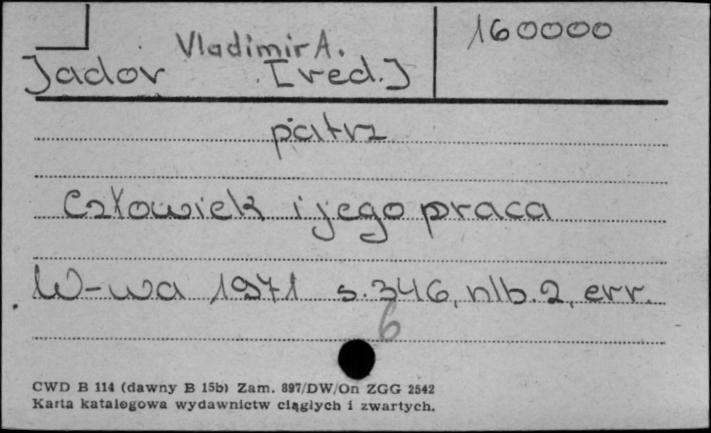 Vladimir A. 160000
Jadov [red.]
patrz
Człowiek i jego praca
W-wa 1971 s. 346, nlb. 2, err.
6
CWD B 114 (dawny B 15b) Zam. 897/DW/On ZGG 2542
Karta katalogowa wydawnictw ciągłych i zwartych.